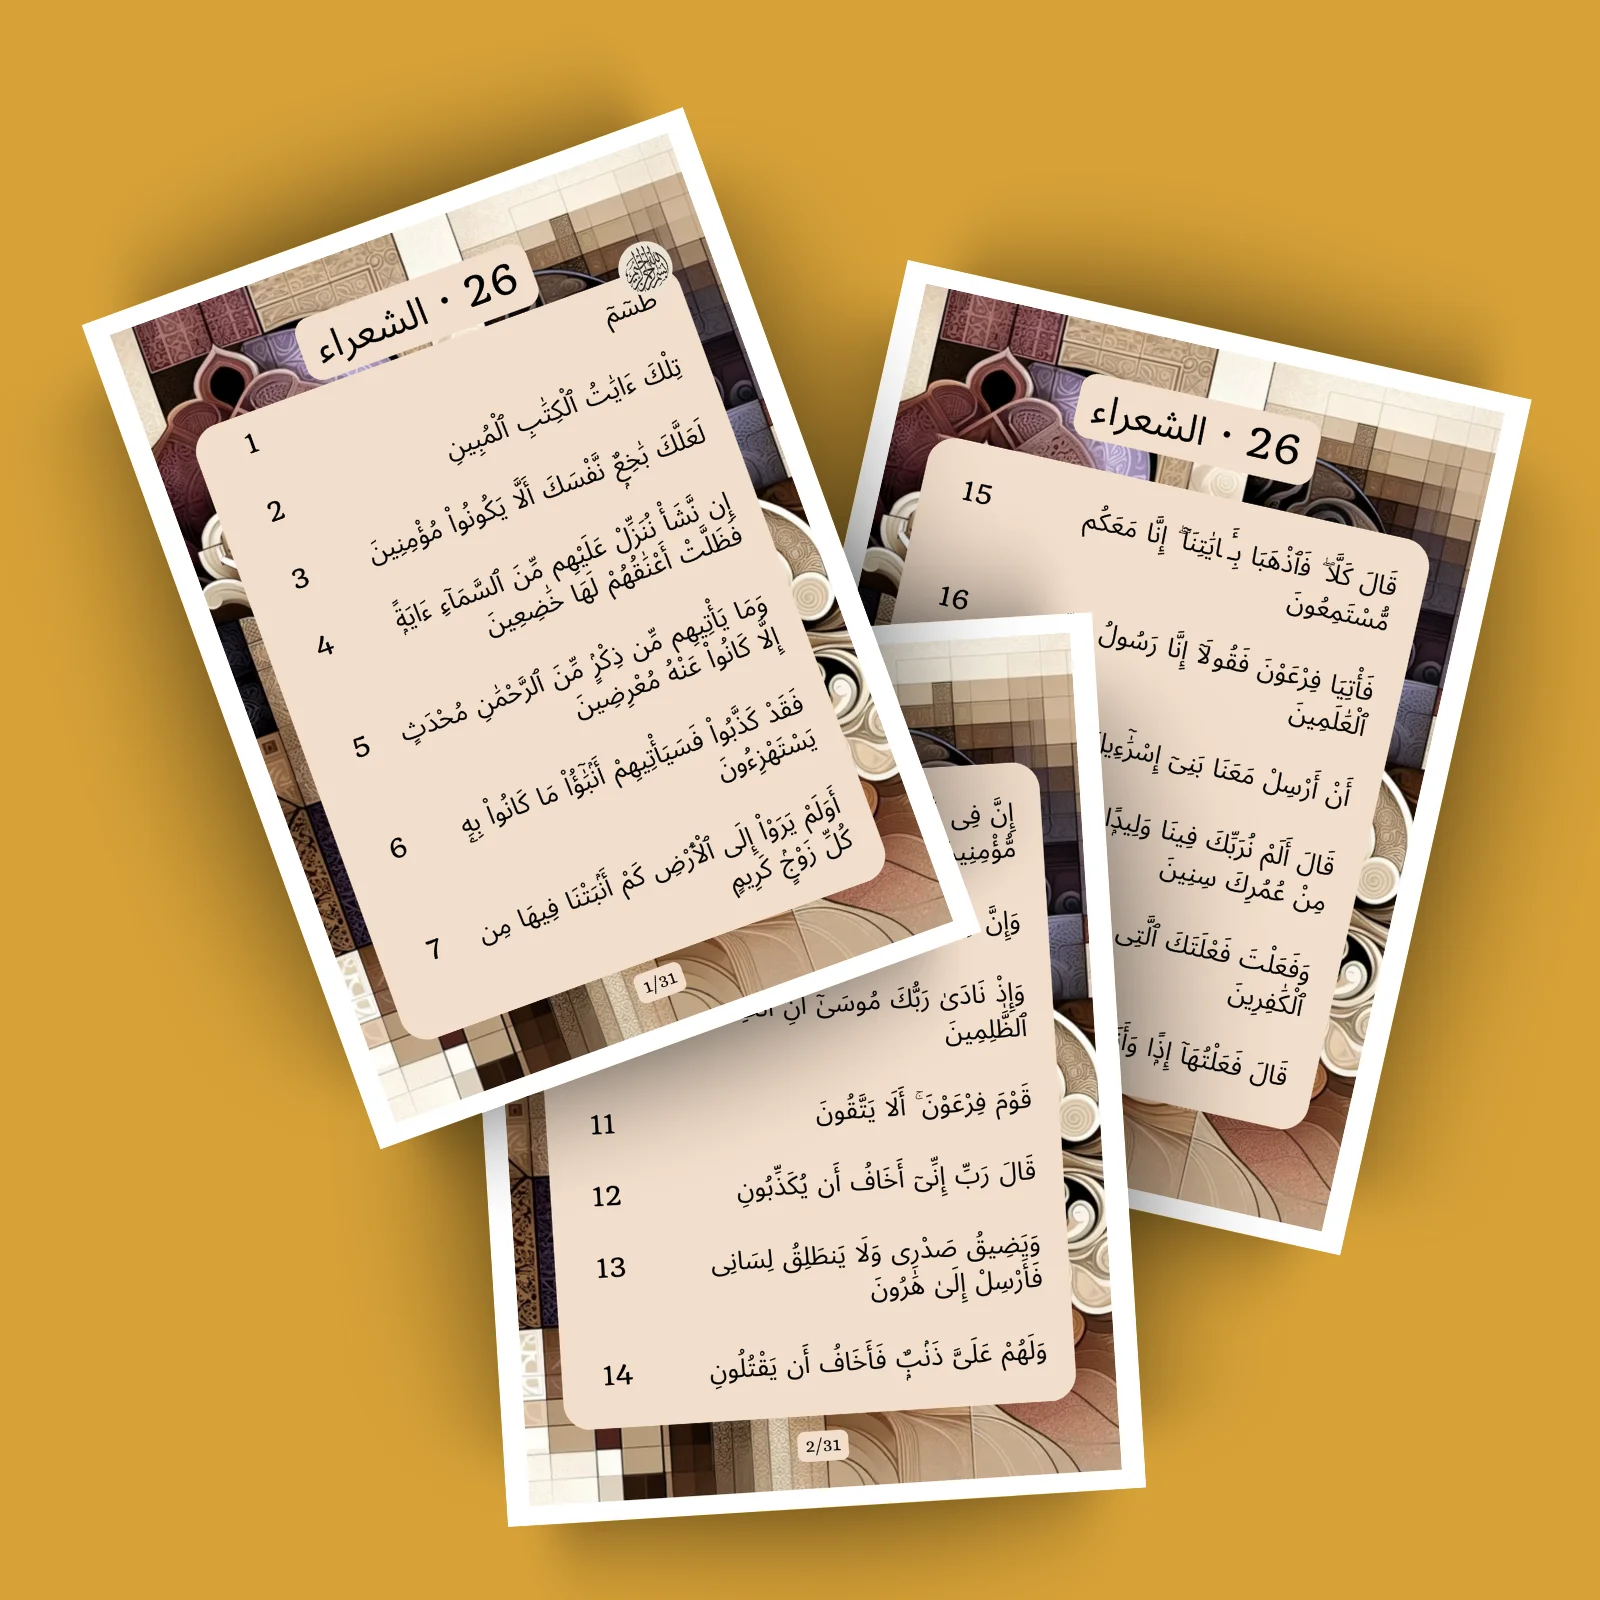 26 • الشعراء
طسٓمٓ
1
تِلْكَ ءَايَٰتُ ٱلْكِتَٰبِ ٱلْمُبِينِ
2
لَعَلَّكَ بَٰخِعٌۭ نَّفْسَكَ أَلَّا يَكُونُوا۟ مُؤْمِنِينَ
3
إِن نَّشَأْ نُنَزِّلْ عَلَيْهِم مِّنَ ٱلسَّمَآءِ ءَايَةًۭ
فَظَلَّتْ أَعْنَٰقُهُمْ لَهَا خَٰضِعِينَ
4
وَمَا يَأْتِيهِم مِّن ذِكْرٍۢ مِّنَ ٱلرَّحْمَٰنِ مُحْدَثٍ
إِلَّا كَانُوا۟ عَنْهُ مُعْرِضِينَ
5
فَقَدْ كَذَّبُوا۟ فَسَيَأْتِيهِمْ أَنۢبَٰٓؤُا۟ مَا كَانُوا۟ بِهِۦ
يَسْتَهْزِءُونَ
6
أَوَلَمْ يَرَوْا۟ إِلَى ٱلْأَرْضِ كَمْ أَنۢبَتْنَا فِيهَا مِن
كُلِّ زَوْجٍۢ كَرِيمٍ
7
1/31
إِنَّ فِى
وَإِنَّ
وَإِذْ نَادَىٰ رَبُّكَ مُوسَىٰٓ أَنِ
ٱلظَّٰلِمِينَ
قَوْمَ فِرْعَوْنَ ۚ أَلَا يَتَّقُونَ
11
قَالَ رَبِّ إِنِّىٓ أَخَافُ أَن يُكَذِّبُونِ
12
وَيَضِيقُ صَدْرِى وَلَا يَنطَلِقُ لِسَانِى
فَأَرْسِلْ إِلَىٰ هَٰرُونَ
13
وَلَهُمْ عَلَىَّ ذَنۢبٌۭ فَأَخَافُ أَن يَقْتُلُونِ
14
2/31
26 • الشعراء
قَالَ كَلَّا ۖ فَٱذْهَبَا بِـَٔايَٰتِنَآ ۖ إِنَّا مَعَكُم
مُّسْتَمِعُونَ
15
فَأْتِيَا فِرْعَوْنَ فَقُولَآ إِنَّا رَسُولُ
ٱلْعَٰلَمِينَ
16
أَنْ أَرْسِلْ مَعَنَا بَنِىٓ إِسْرَٰٓءِيلَ
قَالَ أَلَمْ نُرَبِّكَ فِينَا وَلِيدًۭا
مِنْ عُمُرِكَ سِنِينَ
وَفَعَلْتَ فَعْلَتَكَ ٱلَّتِى
ٱلْكَٰفِرِينَ
قَالَ فَعَلْتُهَآ إِذًۭا